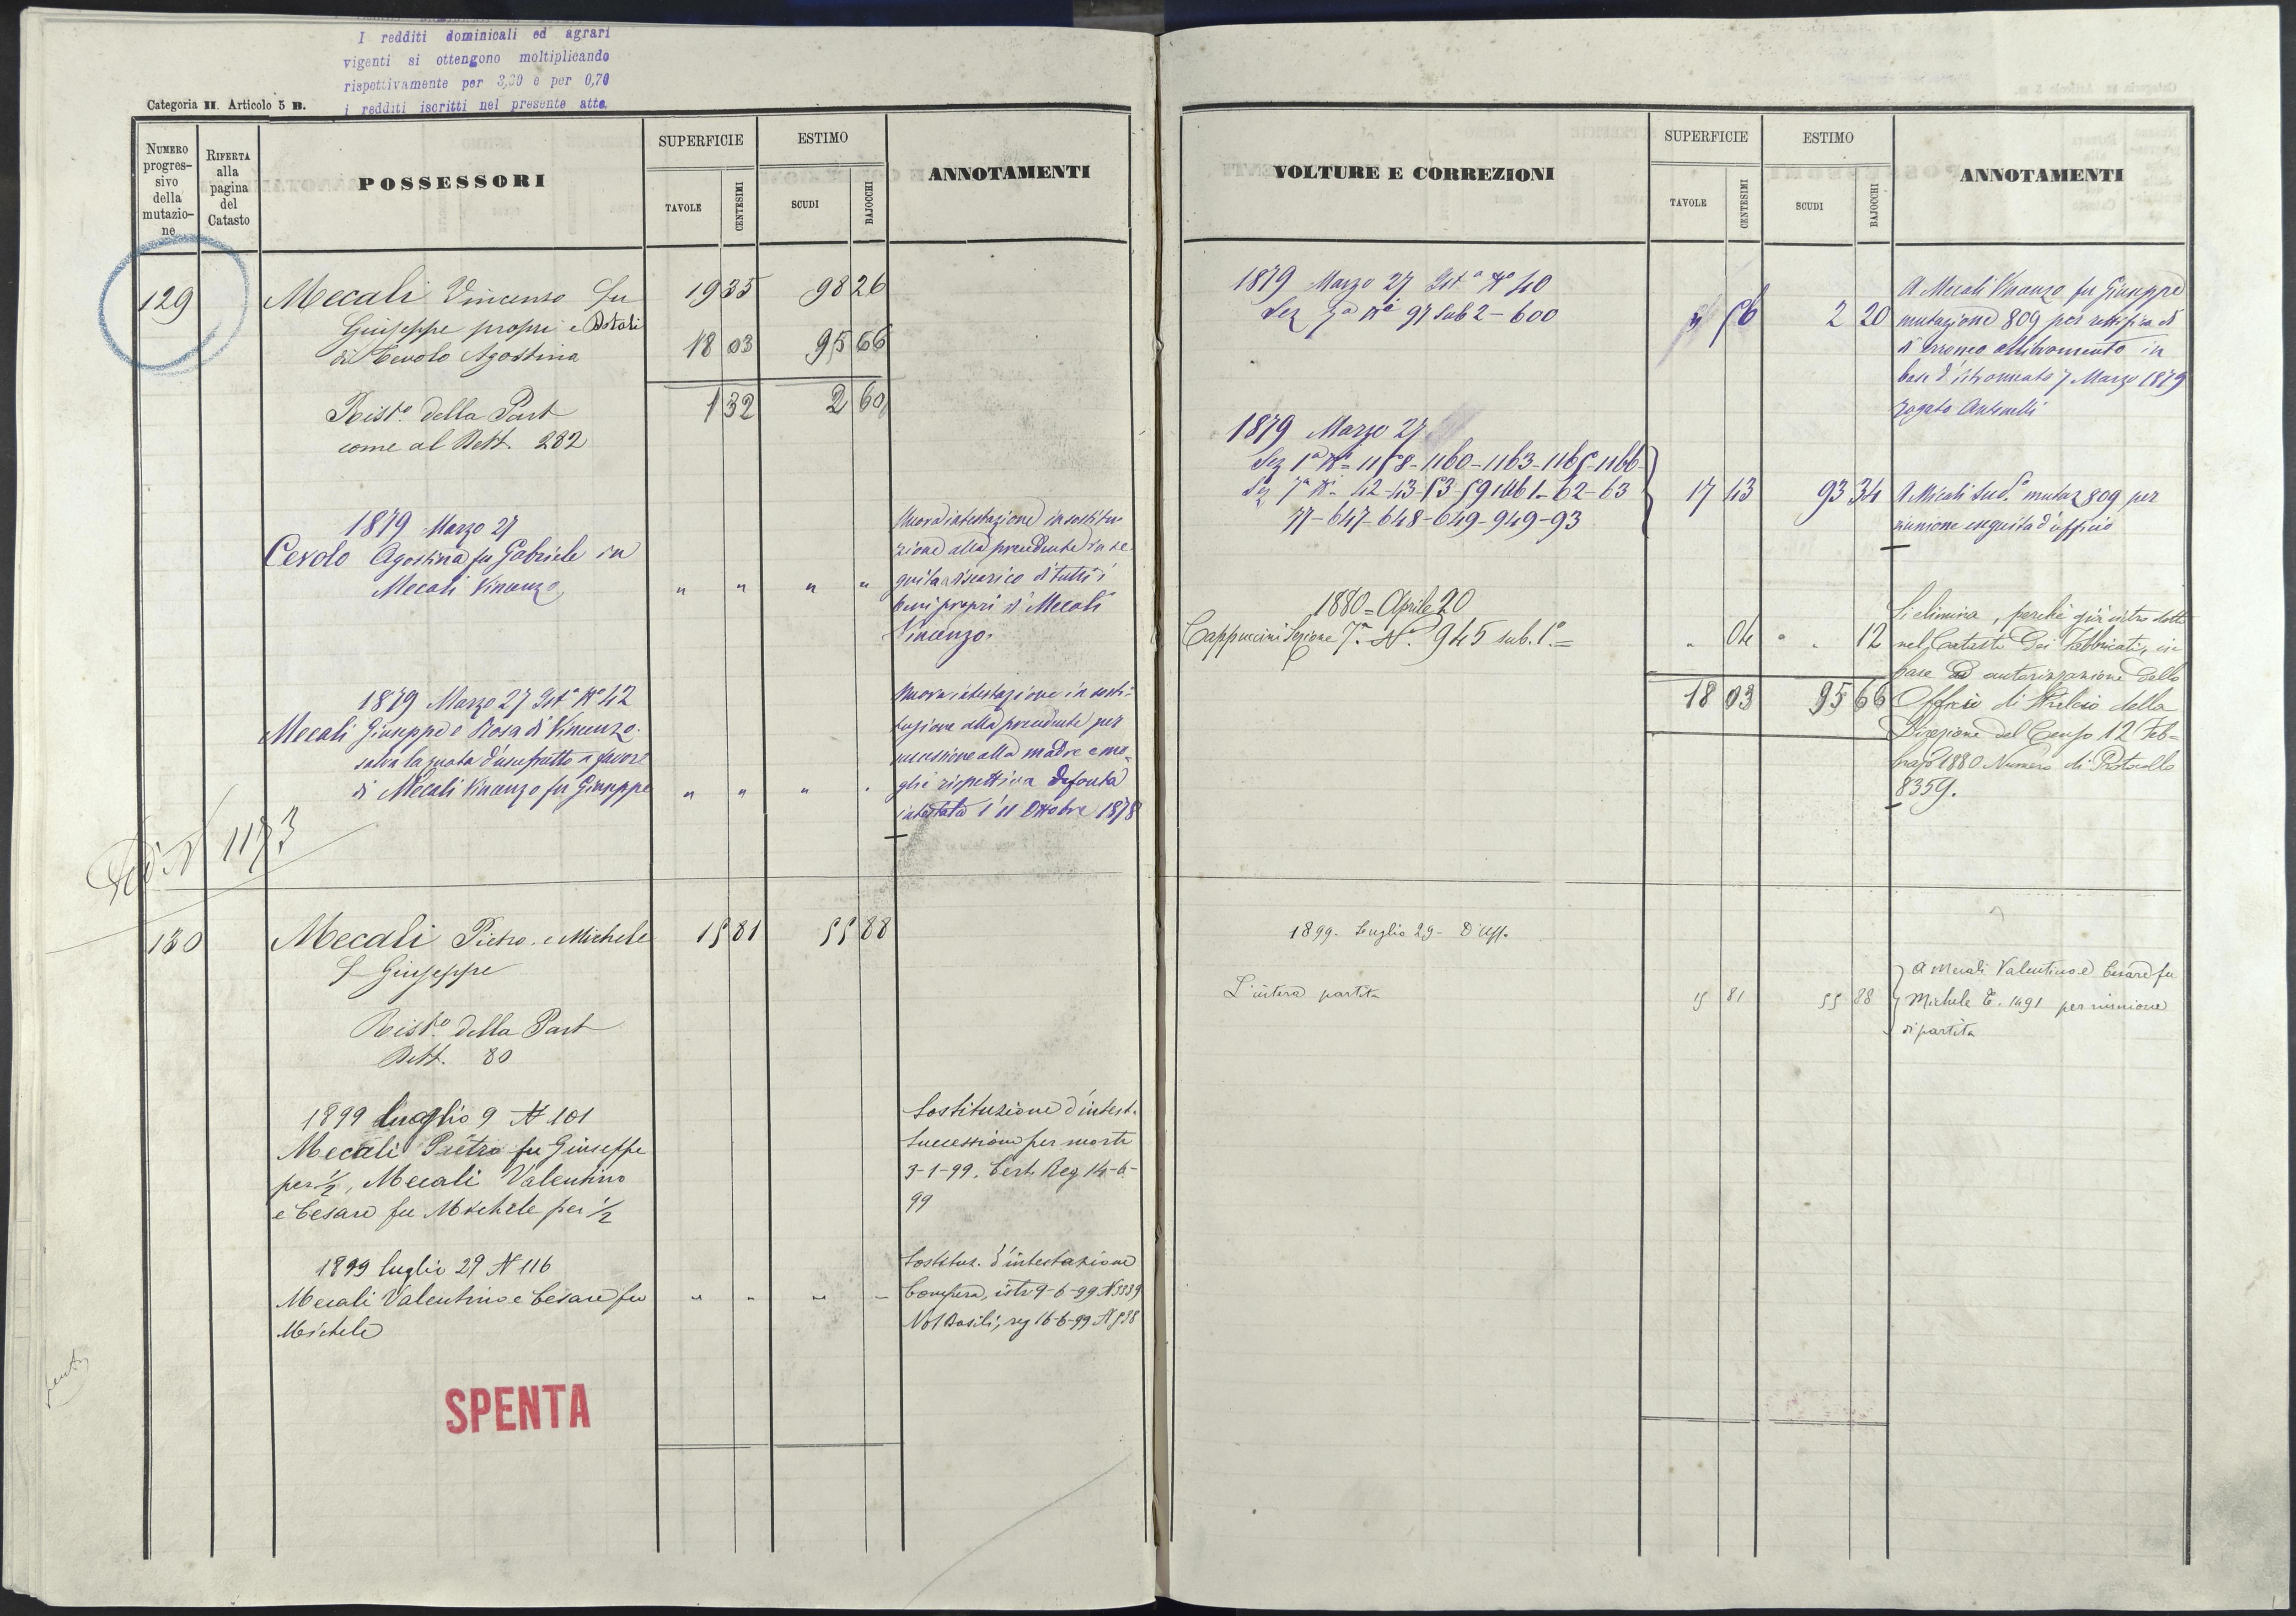 I redditi dominicali ed agrari
vigenti si ottengono moltiplicando
rispettivamente per 3,30 e per 0,70
i redditi iscritti nel presente atto.
Categoria II. Articolo 5 B.
NUMERO progres-sivo della mutazio-ne
RIFERTA alla pagina del Catasto
POSSESSORI
SUPERFICIE
TAVOLE
CENTESIMI
ESTIMO
SCUDI
BAJOCCHI
ANNOTAMENTI
129 Mecali Vincenzo fu 19 35 98 26
Giuseppe propri e Dotali
di Cevolo Agostina 18 03 95 66
Rist.º della Part 1 32 2 60
come al Rett. 282
1879 Marzo 27
Cevolo Agostina fu Gabriele in
Mecali Vincenzo " " " "
Nuova intestazione in sostitu-
zione alla precedente in se-
guita a discarico di tutti i
beni propri di Mecali
Vincenzo.
1879 Marzo 27 Ist.º Nº 42
Mecali Giuseppe e Rosa di Vincenzo.
salva la quota d'usufrutto a favore
di Mecali Vincenzo fu Giuseppe " " " "
Nuova intestazione in sosti-
tuzione alla precedente per
successione alla madre e mo-
glie rispettiva defonta
intestata l'11 Ottobre 1878
Ved. N 1173
130 Mecali Pietro e Michele 15 81 55 88
f Giuseppe
Rist.º della Part
Rett. 80
1899 Luglio 9 N 101
Mecali Pietro fu Giuseppe
per ½, Mecali Valentino
e Cesare fu Michele per ½
Sostituzione d'intest.
Successione per morte
3-1-99. Cert. Reg 14-6-
99
1899 luglio 29 N 116
Mecali Valentino e Cesare fu
Michele
Sostituz. d'intestazione
Compera, istr 9-6-99 N 3339
Not Basili, reg 16-6-99 N 538
SPENTA
VOLTURE E CORREZIONI
SUPERFICIE
TAVOLE
CENTESIMI
ESTIMO
SCUDI
BAJOCCHI
ANNOTAMENTI
1879 Marzo 27 Ist.ª Nº 40
Sez 7ª Nº 97 sub 2 - 600 " 56 2 20
A Mecali Vincenzo fu Giuseppe
mutazione 809 per rettifica di
d'erroneo allibramento in
base d'istromento 7 Marzo 1879
rogato Antonelli
1879 Marzo 27
Sez 1ª Nº = 1158 - 1160 - 1163 - 1165 - 1166
Sez 7ª Nº 42-43-53-59 1461-62-63 17 43 93 34
77-647-648-649-949-93
A Micali sud.º mutaz 809 per
riunione eseguita d'ufficio
1880 = Aprile 20
Cappuccini Sezione 7.ª Nº. 945 sub. 1.º = " 04 " 12
18 03 95 66
Si elimina, perchè già introdotto
nel Catasto dei Fabbricati, in
base ad autorizzazione dello
Officio di Stralcio della
Direzione del Censo 12 Feb-
brajo 1880 Numero di Protocollo
8359.
1899. Luglio 29- D'uff.
L'intera partita 15 81 55 88
A Mecali Valentino e Cesare fu
Michele C. 1491 per riunione
di partita